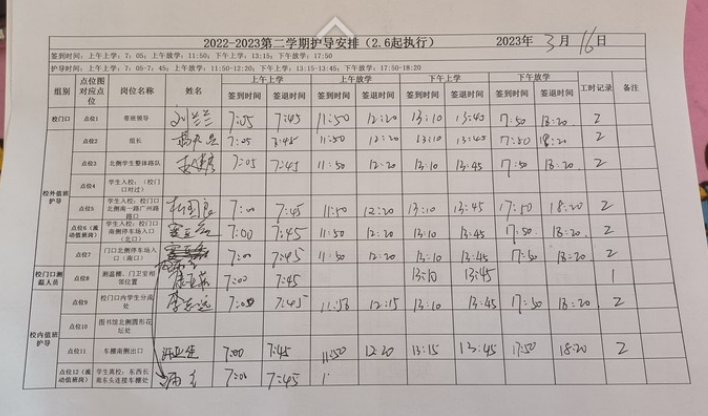 2022-2023第二学期护导安排（2.6起执行） 2023年3月16日
签到时间：上午上学：7：05；上午放学：11:50；下午上学：13:15；下午放学：17:50
护导时间：上午上学：7:05-7：45；上午放学：11:50-12:20；下午上学：13:15-13:45；下午放学：17:50-18:20
组别 点位图对应点位 岗位名称 姓名 上午上学 上午放学 下午上学 下午放学 工时记录 备注
签到时间 签退时间 签到时间 签退时间 签到时间 签退时间 签到时间 签退时间
校门口 点位1 带班领导 刘兰兰 7:05 7:45 11:50 12:20 13:10 13:45 7:50 18:20 2
校外值班护导
点位2 组长 7:05 11:50 12:20 13:10 13:45 7:50 18:20 2
点位3 北侧学生整体路队 7:05 7:45 11:50 12:20 13:10 13:45 17:50 18:20 2
点位4 学生入校：（校门口对过）
点位5 学生入校：校门口北侧南一路广州路路口 7:00 7:45 11:50 12:20 13:10 13:45 17:50 18:20 2
点位6（流动值班岗） 学生入校：校门口南侧停车场入口（北口） 7:00 7:45 11:50 12:20 13:10 13:45 17:50 18:20 2
点位7 门口北侧停车场入口（南口） 7:00 7:45 11:50 12:20 13:10 13:45 17:50 18:20 2
校门口测温人员 点位8 测温棚、门卫室相邻位置 7:00 7:45 13:10 13:45 1
校内值班护导
点位9 校门口内学生分流处 李志远 7:00 7:45 12:15 13:10 13:45 17:50 18:20 2
点位10 图书馆北侧圆形花坛处
点位11 车棚南侧出口 7:00 7:45 11:50 12:20 13:15 13:45 17:50 18:20 2
点位12（流动值班岗） 学生离校：东西长廊东头连接车棚处 7:00 7:45